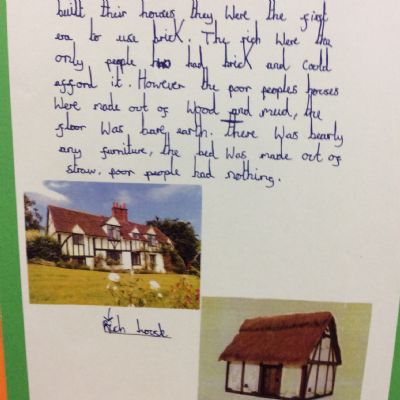 built their houses they were the first
era to use brick. The rich were the
only people ho had brick and could
afford it. However the poor peoples houses
were made out of wood and mud, the
floor was bare earth. There was bearly
any furniture, the bed was made out of
straw, poor people had nothing.
Rich house